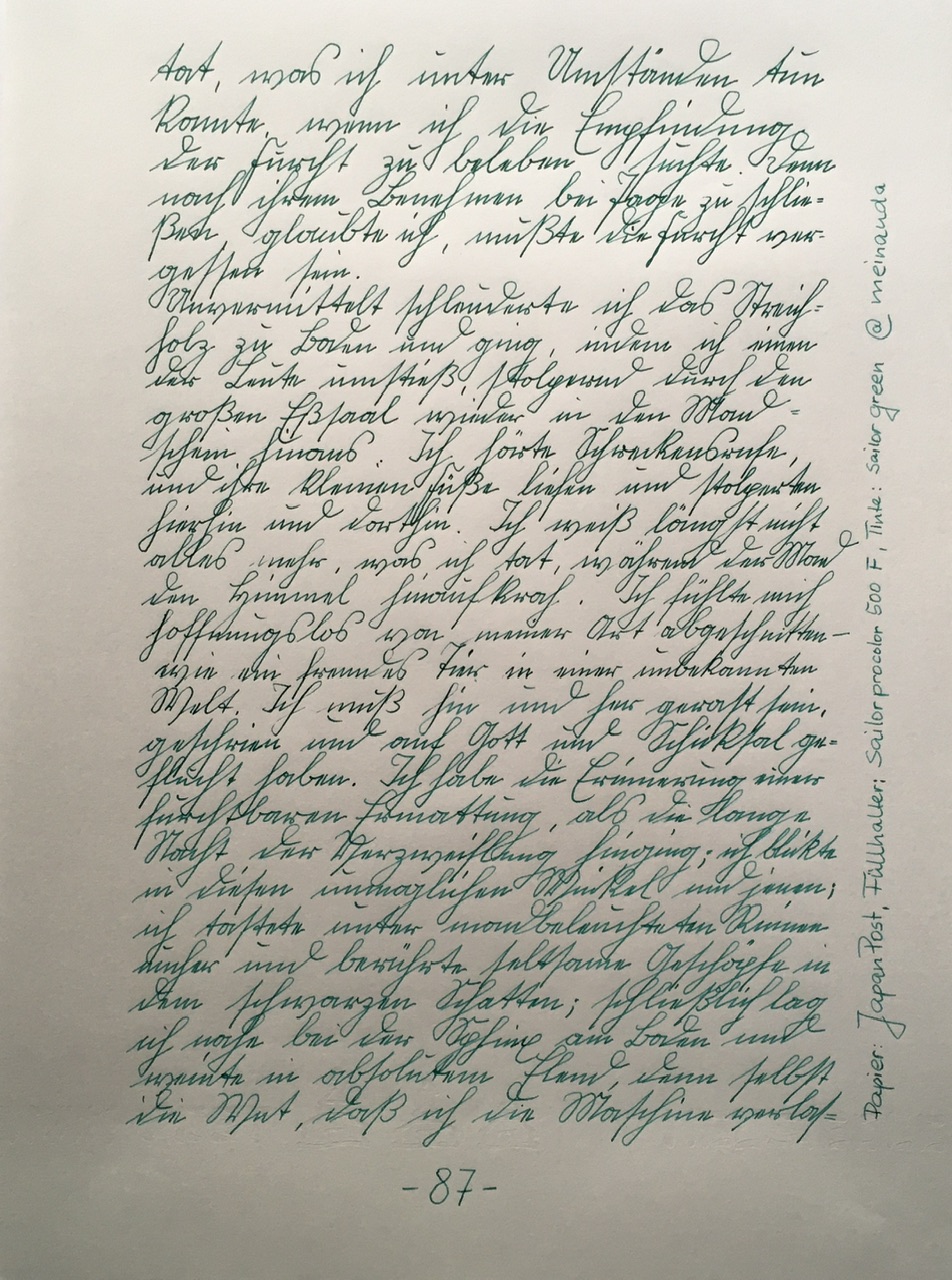 tat, was ich unter Umständen tun
konnte, wenn ich die Empfindung
der Furcht zu beleben suchte. Denn
nach ihrem Benehmen bei Tage zu schlie=
ßen, glaubte ich, mußte die Furcht ver=
gessen sein.
Unvermittelt schleuderte ich das Streich=
holz zu Boden und ging, indem ich einen
der Leute umstieß, stolpernd durch den
großen Eßsaal wieder in den Mond=
schein hinaus. Ich hörte Schreckensrufe,
und ihre kleinen Füße liefen und stolperten
hierhin und dorthin. Ich weiß längst nicht
alles mehr, was ich tat, während der Mond
den Himmel hinaufkroch. Ich fühlte mich
hoffnungslos von meiner Art abgeschnitten –
wie ein fremdes Tier in einer unbekannten
Welt. Ich muß hin und her gerast sein,
geschrien und auf Gott und Schicksal ge=
flucht haben. Ich habe die Erinnerung einer
furchtbaren Ermattung, als die lange
Nacht der Verzweiflung hinging; ich blickte
in diesen unmöglichen Winkel und jenen;
ich tastete unter mondbeleuchteten Ruinen
umher und berührte seltsame Geschöpfe in
dem schwarzen Schatten; schließlich lag
ich nahe bei der Sphinx am Boden und
weinte in absolutem Elend, denn selbst
die Wut, daß ich die Maschine verlas=
- 87 -
Papier: Japan Post, Füllhalter: Sailor procolor 500 F, Tinte: Sailor green @ meinauda